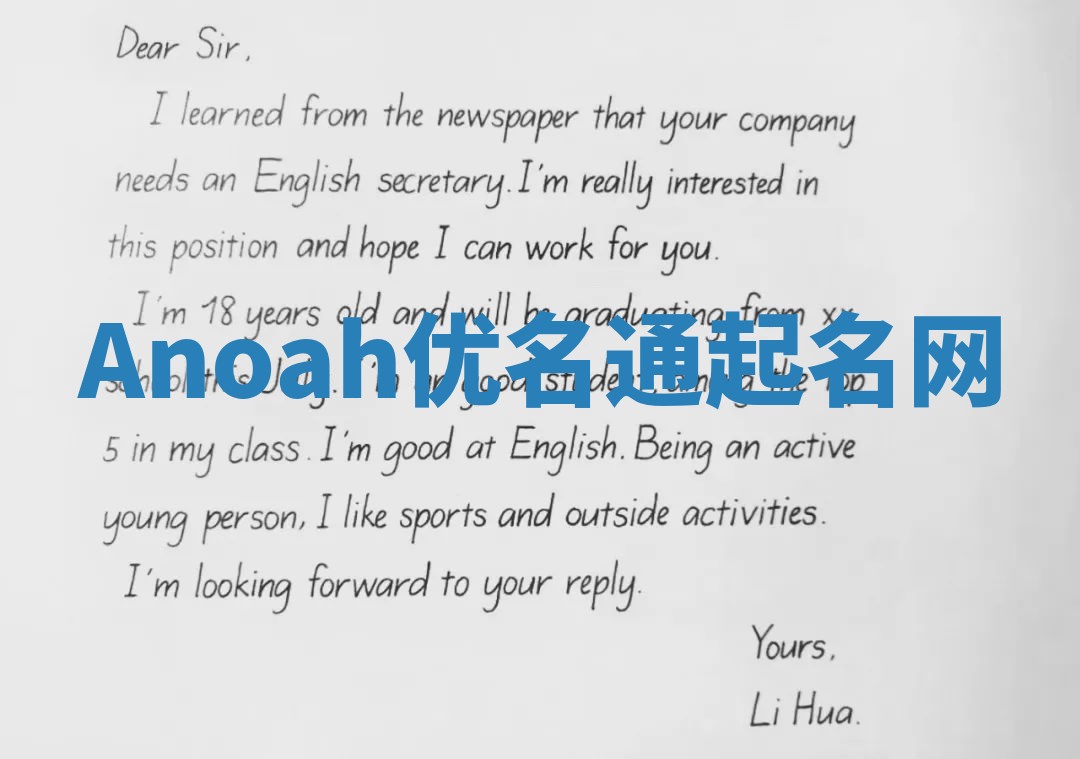 Dear Sir,
I learned from the newspaper that your company
needs an English secretary. I'm really interested in
this position and hope I can work for you.
I'm 18 years old and will be graduating from xx
Anoah优名通起名网
school this July. I'm good student, among the top
5 in my class. I'm good at English. Being an active
young person, I like sports and outside activities.
I'm looking forward to your reply.
Yours,
Li Hua.